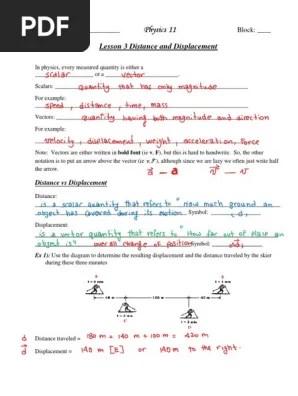 PDF
Physics 11 Block: ____
Lesson 3 Distance and Displacement
In physics, every measured quantity is either a
scalar or a vector.
Scalars: quantity that has only magnitude
For example:
speed, distance, time, mass
Vectors: quantity having both magnitude and direction
For example:
velocity, displacement, weight, acceleration, force
Note: Vectors are either written in bold font (ie v, F), but this is hard to handwrite. So, the other
notation is to put an arrow above the vector (ie v, F), although since we are lazy we often just write half
the arrow.
Distance vs Displacement
Distance:
is a scalar quantity that refers to "how much ground an
object has covered during its motion. Symbol: d
Displacement:
is a vector quantity that refers to "How far out of place an
object is" overall change of position. Symbol: d
Ex 1): Use the diagram to determine the resulting displacement and the distance traveled by the skier
during these three minutes
A
D
C
B
d Distance traveled = 180 m + 140 m + 100 m = 420 m
d Displacement = 140 m [E] or 140 m to the right.